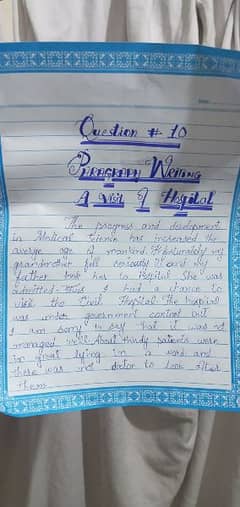 Question # 10
Paragraph Writing
A Visit of Hospital
The progress and development
in Medical Science has increased the
average age of mankind. my
grandmother fell seriously ill and my
father took her to Hospital. She was
admitted. I had a chance to
visit the Civil Hospital. The hospital
was under government control but
I am sorry to say that it was not
managed well. About thirty patients were
lying in a ward and
there was not doctor to look after
them.